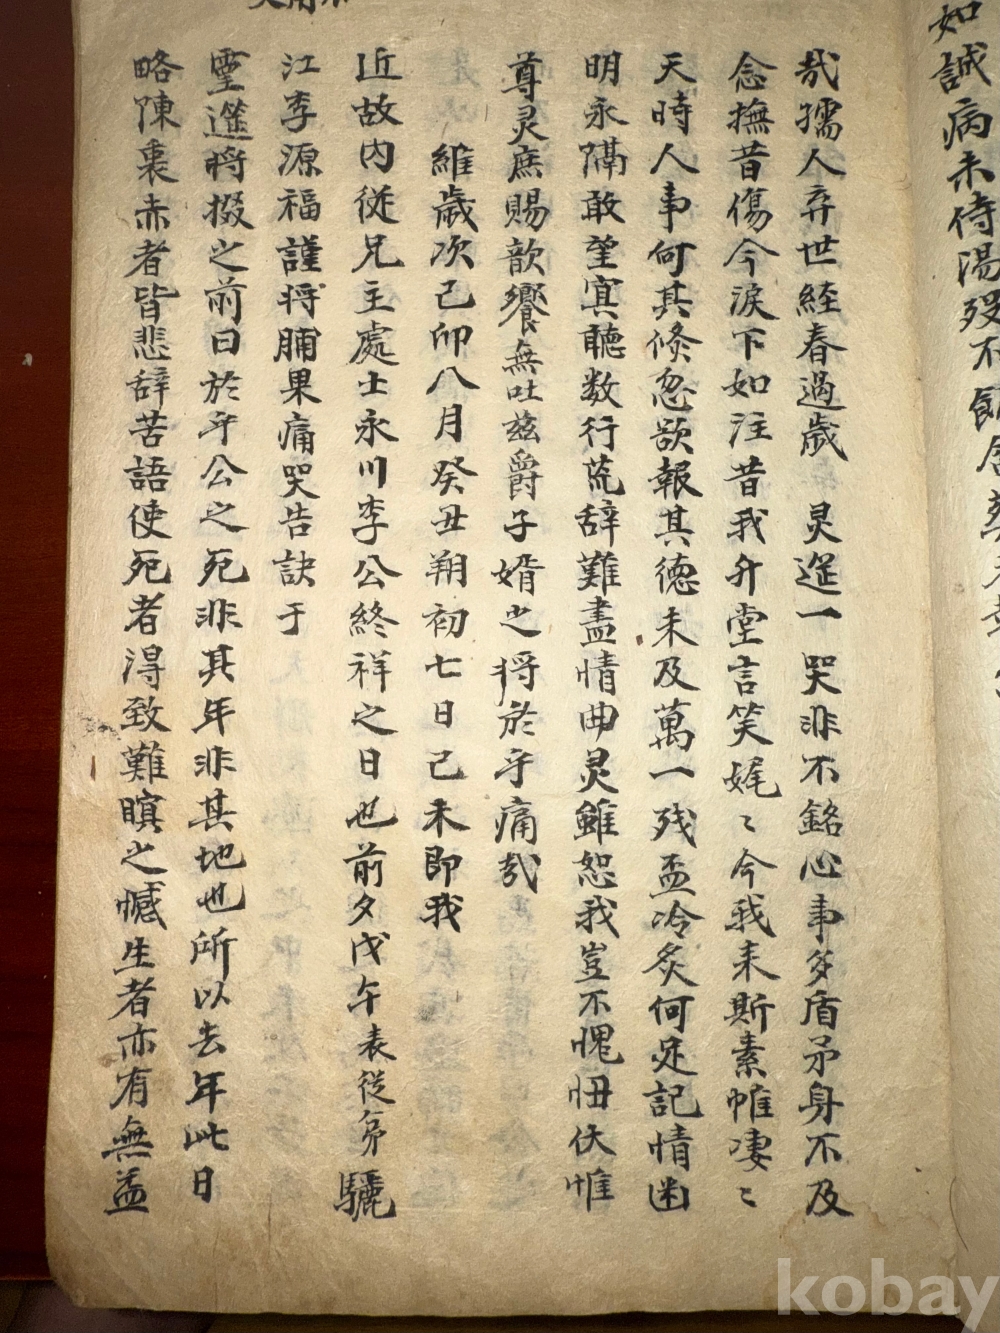 如誠病未侍湯歿不飯含
哉孺人弃世経春過歲 灵筵一哭非不銘心事多盾矛身不及
念撫昔傷今淚下如注昔我升堂言笑娓〻今我来斯素帷凄〻
天時人事何其倏忽欲報其德未及萬一残盃冷炙何足記情幽
明永隔敢望寘聽数行荒辞難盡情曲灵雖恕我豈不愧忸伏惟
尊灵庶賜歆饗無吐玆爵子婿之将於乎痛哉
維歲次己卯八月癸丑朔初七日己未即我
近故内従兄主處士永川李公終祥之日也前夕戊午表従弟驪
江李源福謹将脯果痛哭告訣于
靈筵将掇之前曰於乎公之死非其年非其地也所以去年此日
略陳裏赤者皆悲辞苦語使死者淂致難瞑之憾生者亦有無益
kobay